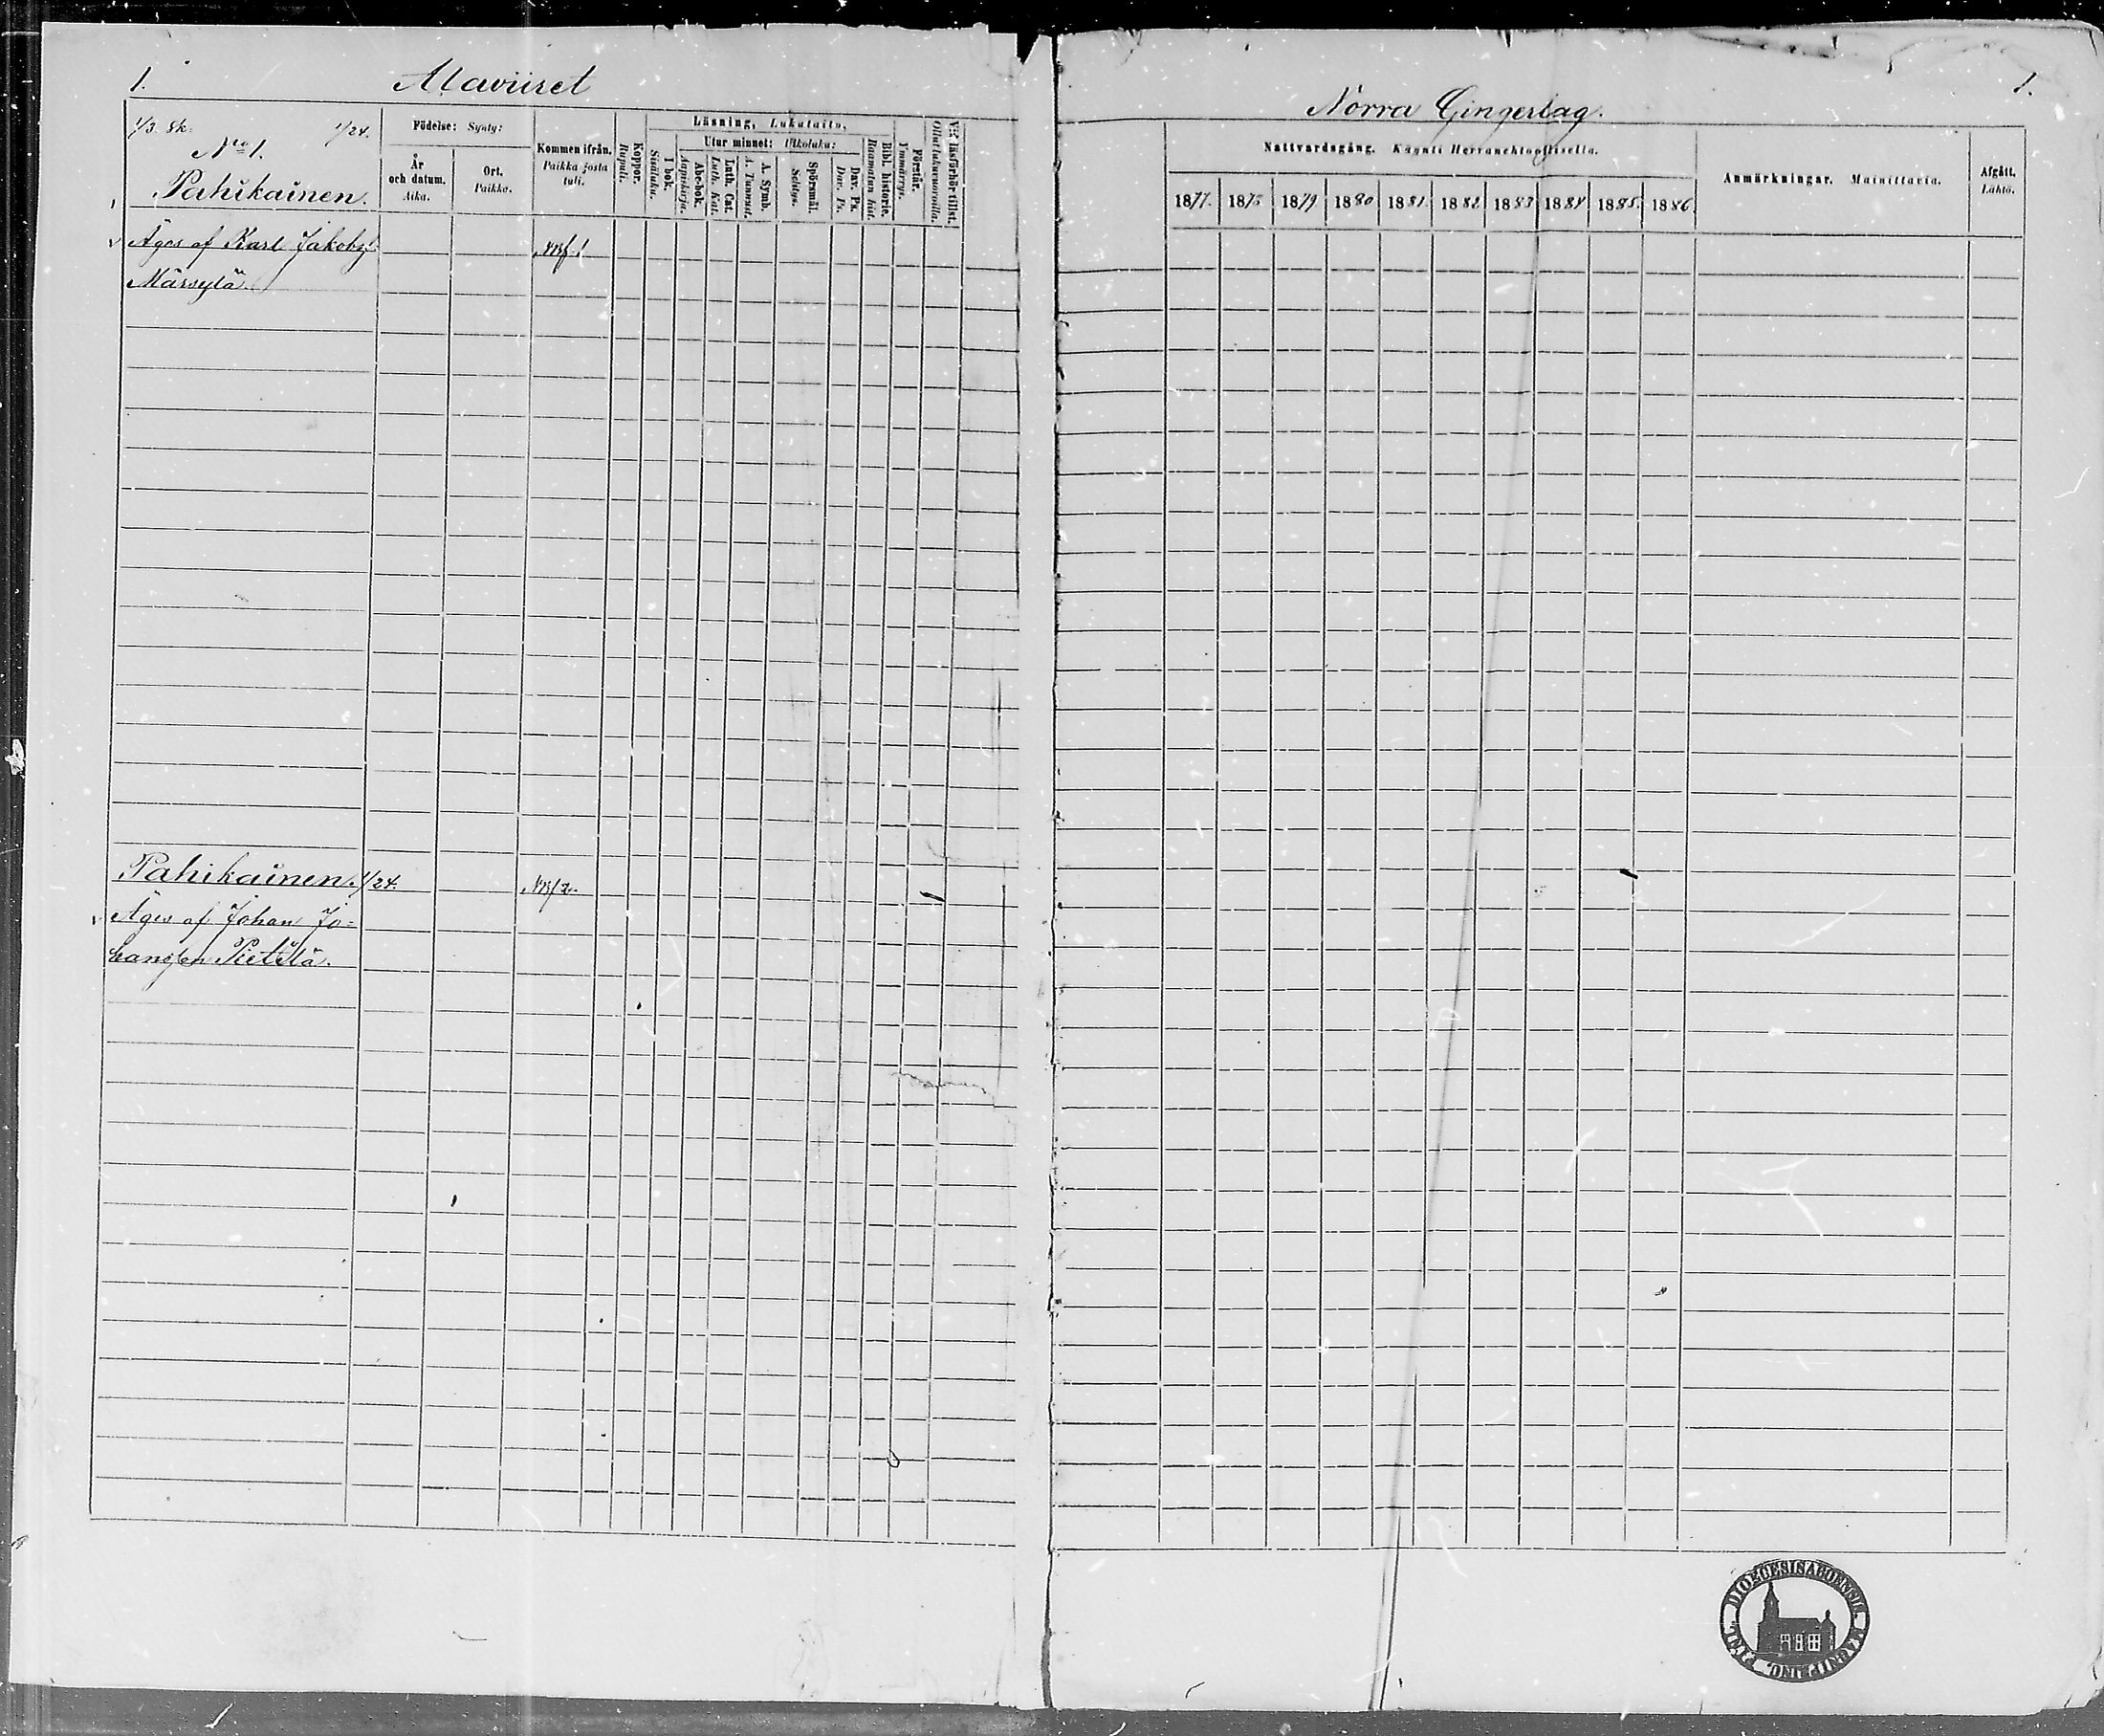 1.
Alaviiret
1/3 sk. 1/24.
No 1.
Pahikainen.
Födelse: Synty:
År och datum. Aika.
Ort. Paikka.
Kommen ifrån. Paikka josta tuli.
Koppor. Rupuli.
Läsning, Lukutaito.
I bok. Sisäluku.
Utur minnet: Ulkoluku:
Abc-bok. Aapiskirja.
Luth. Cat. Luth. Kat.
A. Symb. A. Tunnust.
Spörsmål. Selitys.
Dav. Ps. Dav. Ps.
Bibl. historie. Raamatun hist.
Förstår. Ymmärrys.
Vid läsförhör tillst. Ollut lukuvuoroilla.
Äges af Karl Jakobs:
Märsylä.
Pahikainen. 1/24.
Äges af Johan Jo=
hansson Pietilä.
1.
Norra Gingerlag.
Nattvardsgång. Käynti Herranehtoollisella.
1877. 1878 1879 1880 1881 1882 1883 1884 1885. 1886
Anmärkningar. Mainittavia.
Afgått. Lähtö.